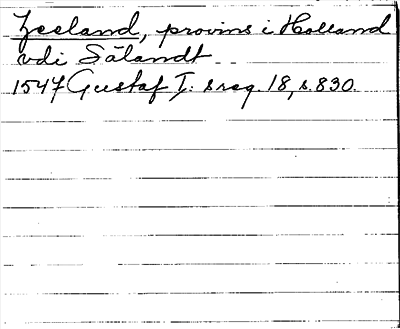 Zeeland, provins i Holland
vdi Sälandt
1547 Gustaf I: s reg. 18, s. 830.